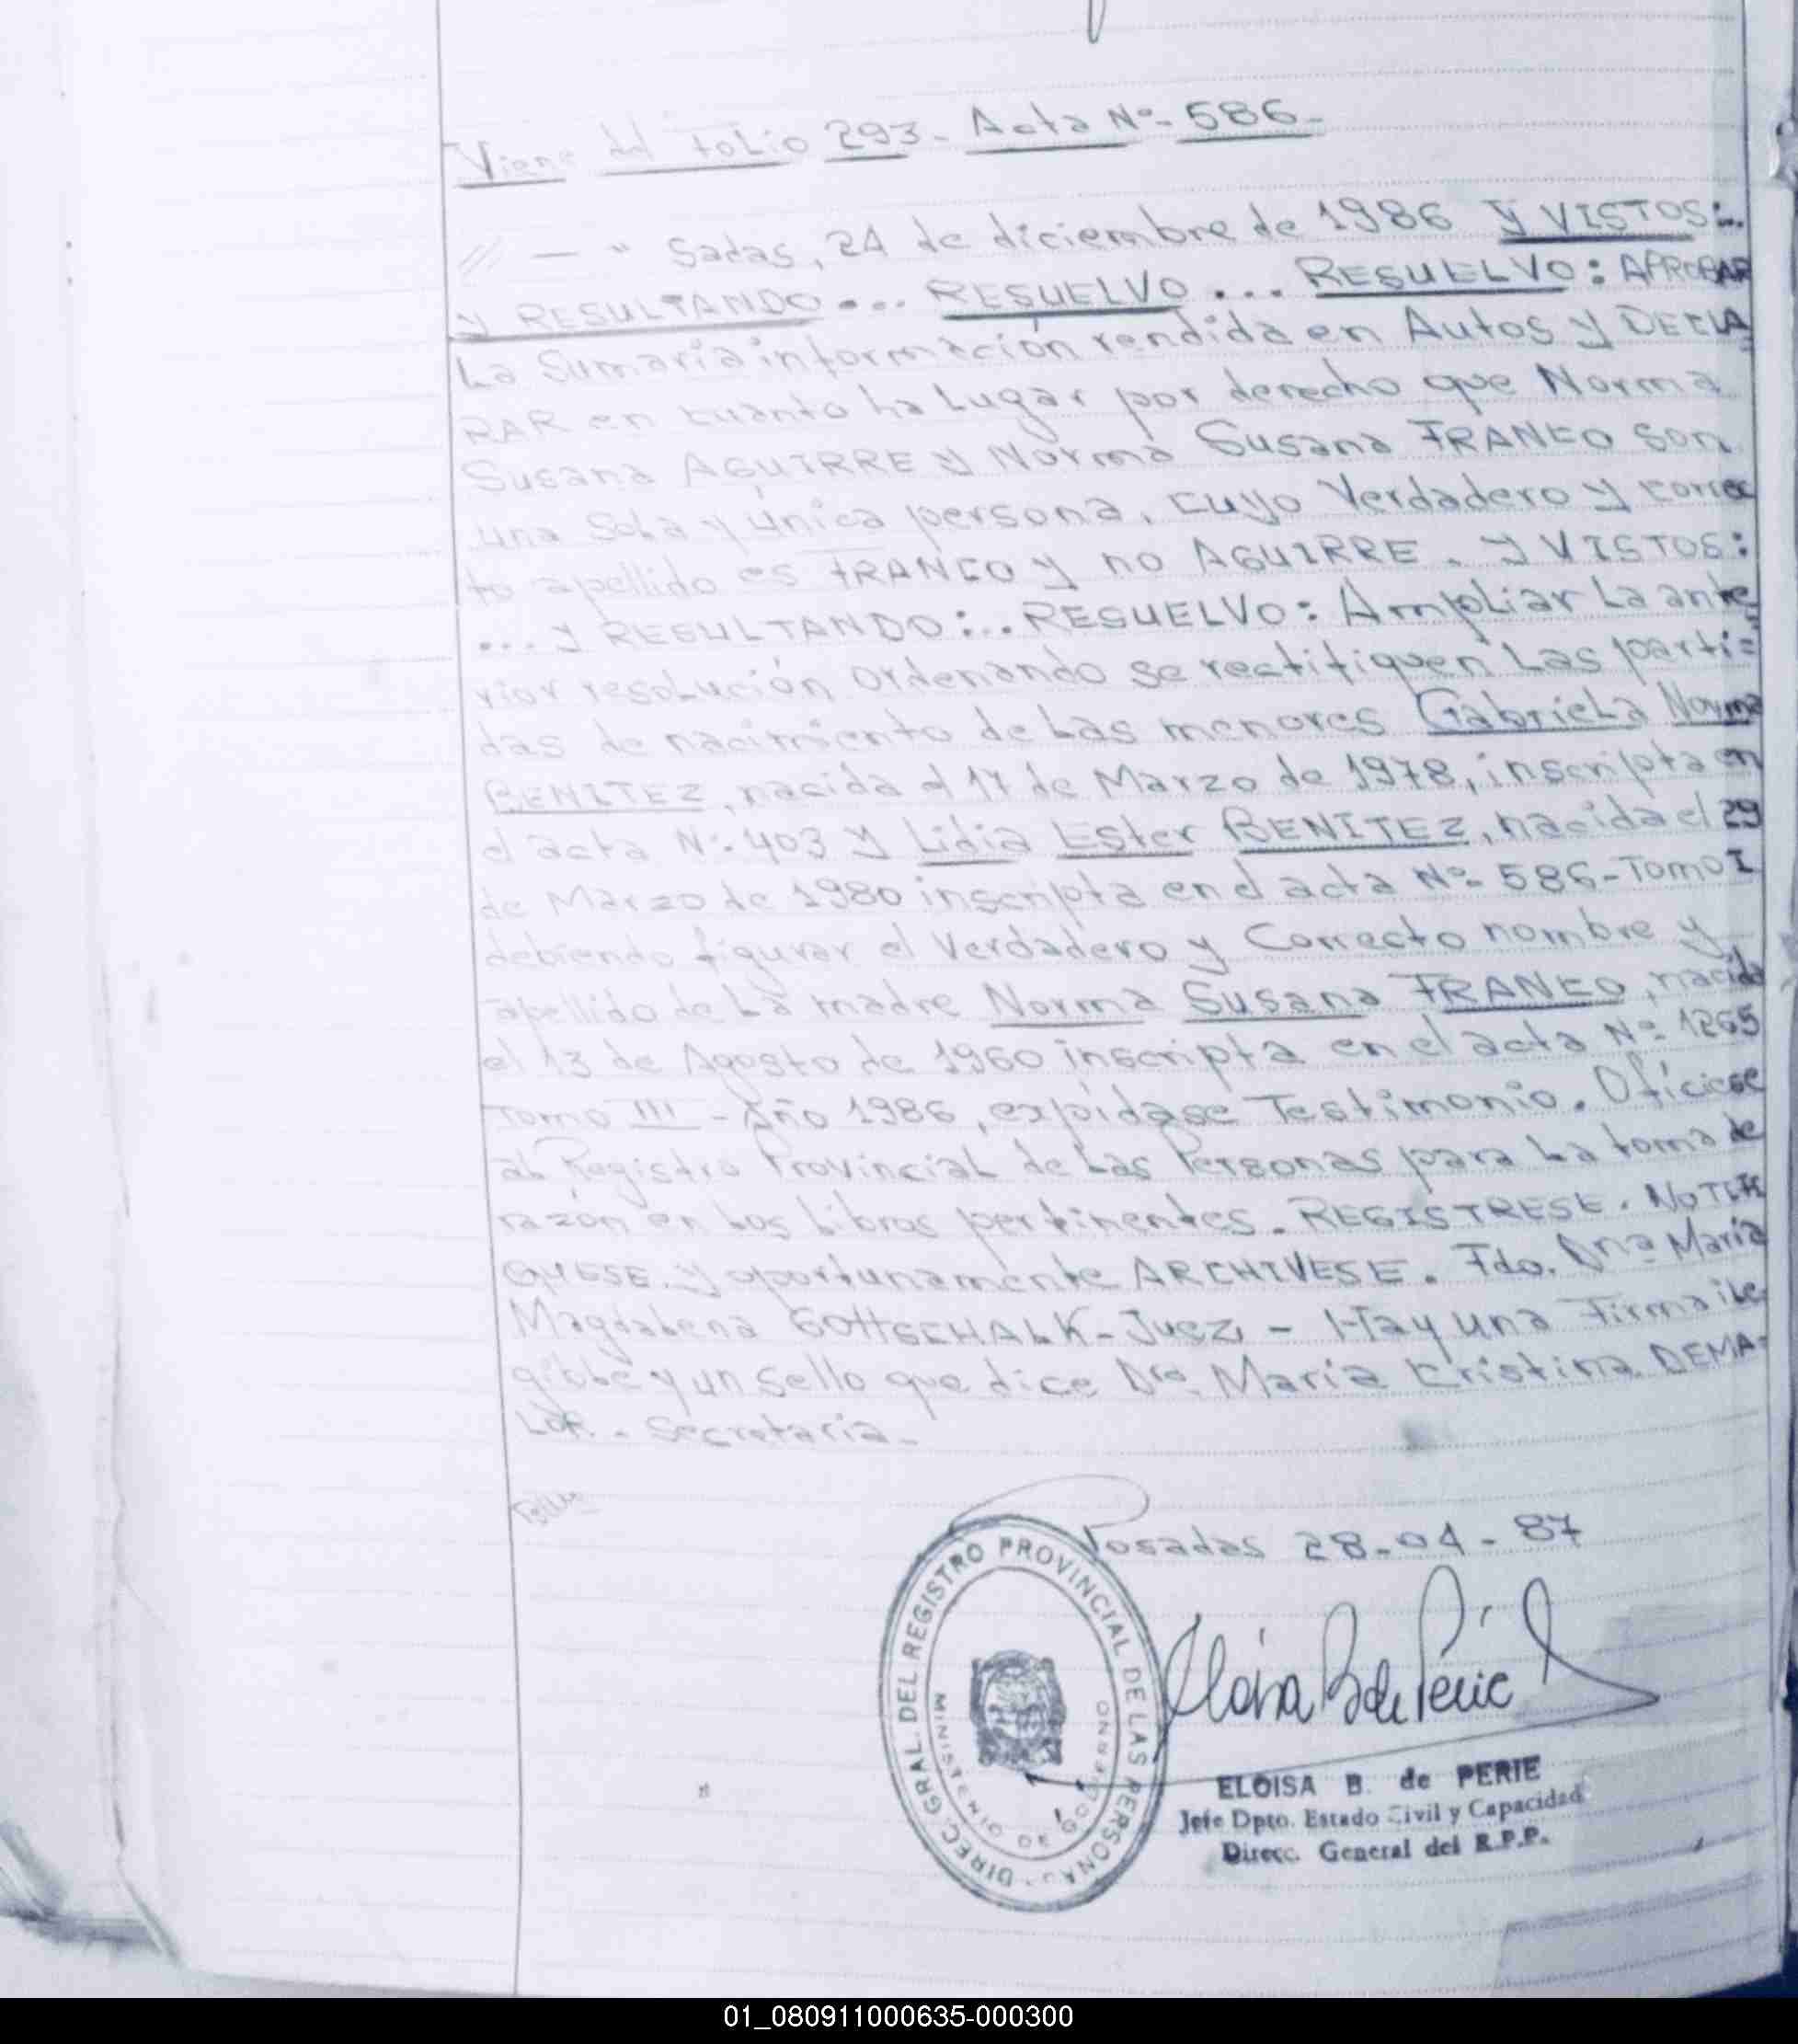 Viene del folio 293 - Acta Nº- 586 -
// — " Sadas, 24 de diciembre de 1986 Y VISTOS:..
y RESULTANDO... RESUELVO... RESUELVO: APROBAR
La Sumaria información rendida en Autos y DECLA
RAR en cuanto ha Lugar por derecho que Norma
Susana AGUIRRE y Norma Susana FRANCO son
una Sola y única persona, cuyo Verdadero y correc
to apellido es FRANCO y no AGUIRRE. Y VISTOS:
... y RESULTANDO:.. RESUELVO: Ampliar La ante
rior resolución ordenando se rectifiquen Las parti=
das de nacimiento de Las menores Gabriela Norma
BENITEZ, nacida el 17 de Marzo de 1978, inscripta en
el acta Nº- 403 y Lidia Ester BENITEZ, nacida el 29
de Marzo de 1980 inscripta en el acta Nº- 586 - Tomo I
debiendo figurar el Verdadero y Correcto nombre y
apellido de La madre Norma Susana FRANCO, nacida
el 13 de Agosto de 1960 inscripta en el acta Nº- 1265
Tomo III - Año 1986, expídase Testimonio. Ofíciese
al Registro Provincial de Las Personas para La toma de
razón en Los Libros pertinentes. REGISTRESE. NOTIFI
QUESE. y oportunamente ARCHIVESE. Fdo. Dra María
Magdalena GOTTSCHALK - Juez - Hay una Firma ile
gible y un sello que dice Dra. María Cristina DEMA=
LDE. - Secretaria -
Posadas 28-04-87
DIREC. GRAL. DEL REGISTRO PROVINCIAL DE LAS PERSONAS
MINISTERIO DE GOBIERNO
ELOISA B. de PERIE
Jefe Dpto. Estado Civil y Capacidad
Direcc. General del R.P.P.
01_080911000635-000300